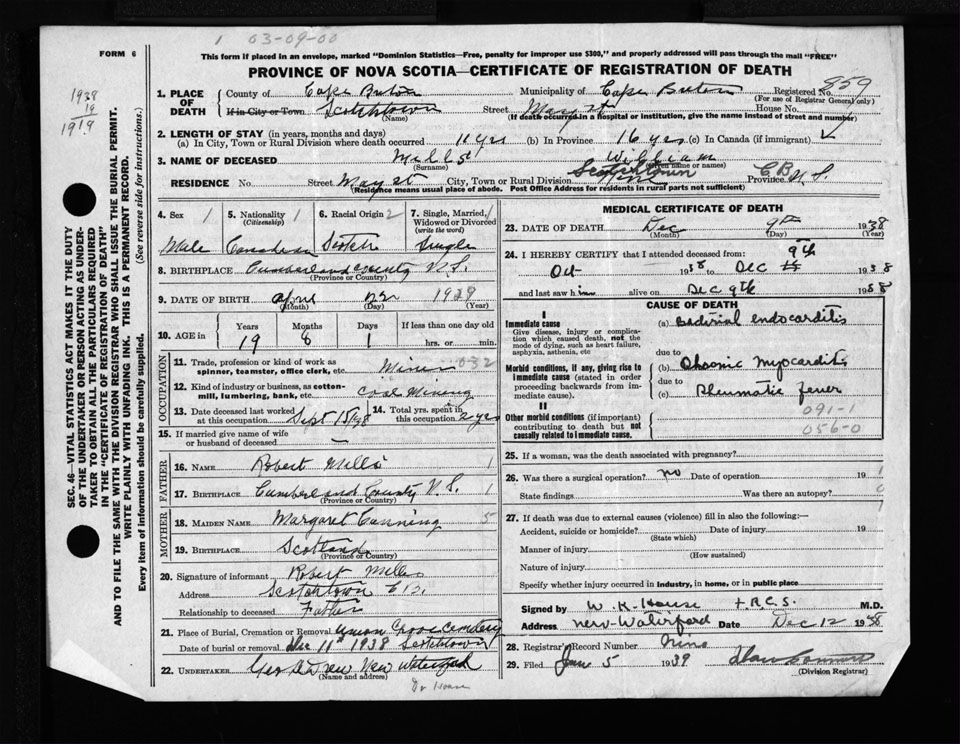 1 03-09-00
FORM 6
This form if placed in an envelope, marked "Dominion Statistics—Free, penalty for improper use $300," and properly addressed will pass through the mail "FREE"
PROVINCE OF NOVA SCOTIA—CERTIFICATE OF REGISTRATION OF DEATH
1938
19
1919
SEC. 46—VITAL STATISTICS ACT MAKES IT THE DUTY
OF THE UNDERTAKER OR PERSON ACTING AS UNDER-
TAKER TO OBTAIN ALL THE PARTICULARS REQUIRED
IN THE "CERTIFICATE OF REGISTRATION OF DEATH"
AND TO FILE THE SAME WITH THE DIVISION REGISTRAR WHO SHALL ISSUE THE BURIAL PERMIT.
WRITE PLAINLY WITH UNFADING INK. THIS IS A PERMANENT RECORD.
Every item of information should be carefully supplied. (See reverse side for instructions.)
1. PLACE OF DEATH County of Cape Breton Municipality of Cape Breton Registered No. 859
(For use of Registrar General only)
If in City or Town Scotchtown Street May St House No.
(Name) (If death occurred in a hospital or institution, give the name instead of street and number)
2. LENGTH OF STAY (in years, months and days)
(a) In City, Town or Rural Division where death occurred 11 yrs (b) In Province 16 yrs (c) In Canada (if immigrant)
3. NAME OF DECEASED Mills William
(Surname) (Given name or names)
RESIDENCE No. Street May St City, Town or Rural Division Scotchtown C B Province N. S.
(Residence means usual place of abode. Post Office Address for residents in rural parts not sufficient)
4. Sex 1 5. Nationality 1 (Citizenship) 6. Racial Origin 2 7. Single, Married, Widowed or Divorced (write the word) 1
Male Canadian Scotch Single
8. BIRTHPLACE Cumberland County N. S.
(Province or Country)
9. DATE OF BIRTH April 1939
(Month) (Day) (Year)
10. AGE in Years Months Days If less than one day
19 8 1 hrs. or min.
OCCUPATION
11. Trade, profession or kind of work as spinner, teamster, office clerk, etc. Miner 032
12. Kind of industry or business, as cotton-mill, lumbering, bank, etc. Coal Mining
13. Date deceased last worked at this occupation Sept 15 14. Total yrs. spent in this occupation 2 yrs
15. If married give name of wife or husband of deceased —
FATHER
16. NAME Robert Mills 1
17. BIRTHPLACE Cumberland County N. S. 1
(Province or Country)
MOTHER
18. MAIDEN NAME Margaret Canning 5
19. BIRTHPLACE Scotland
(Province or Country)
20. Signature of informant Robert Mills
Address Scotchtown C B.
Relationship to deceased Father
21. Place of Burial, Cremation or Removal Union Grove Cemetery
Date of burial or removal Dec 11th 1938 Scotchtown
22. UNDERTAKER Geo New Waterford
(Name and address)
Dr House
MEDICAL CERTIFICATE OF DEATH
23. DATE OF DEATH Dec 9th 1938
(Month) (Day) (Year)
24. I HEREBY CERTIFY that I attended deceased from:
Oct 1938 to Dec 9th 1938
and last saw him alive on Dec 9th 1938
CAUSE OF DEATH
I
Immediate cause
Give disease, injury or complication which caused death, not the mode of dying, such as heart failure, asphyxia, asthenia, etc
(a) Bacterial endocarditis
due to
Morbid conditions, if any, giving rise to immediate cause (stated in order proceeding backwards from immediate cause).
(b) Chronic myocarditis
due to
(c) Rheumatic fever
II
Other morbid conditions (if important) contributing to death but not causally related to immediate cause.
091-1
056-0
25. If a woman, was the death associated with pregnancy?
26. Was there a surgical operation? no Date of operation 19
State findings Was there an autopsy?
27. If death was due to external causes (violence) fill in also the following:—
Accident, suicide or homicide? Date of injury 19
(State which)
Manner of injury
(How sustained)
Nature of injury
Specify whether injury occurred in industry, in home, or in public place
Signed by W. K. House F.R.C.S. M.D.
Address New-Waterford Date Dec 12 1938
28. Registrar's Record Number Nine
29. Filed Jan 5 1939
(Division Registrar)